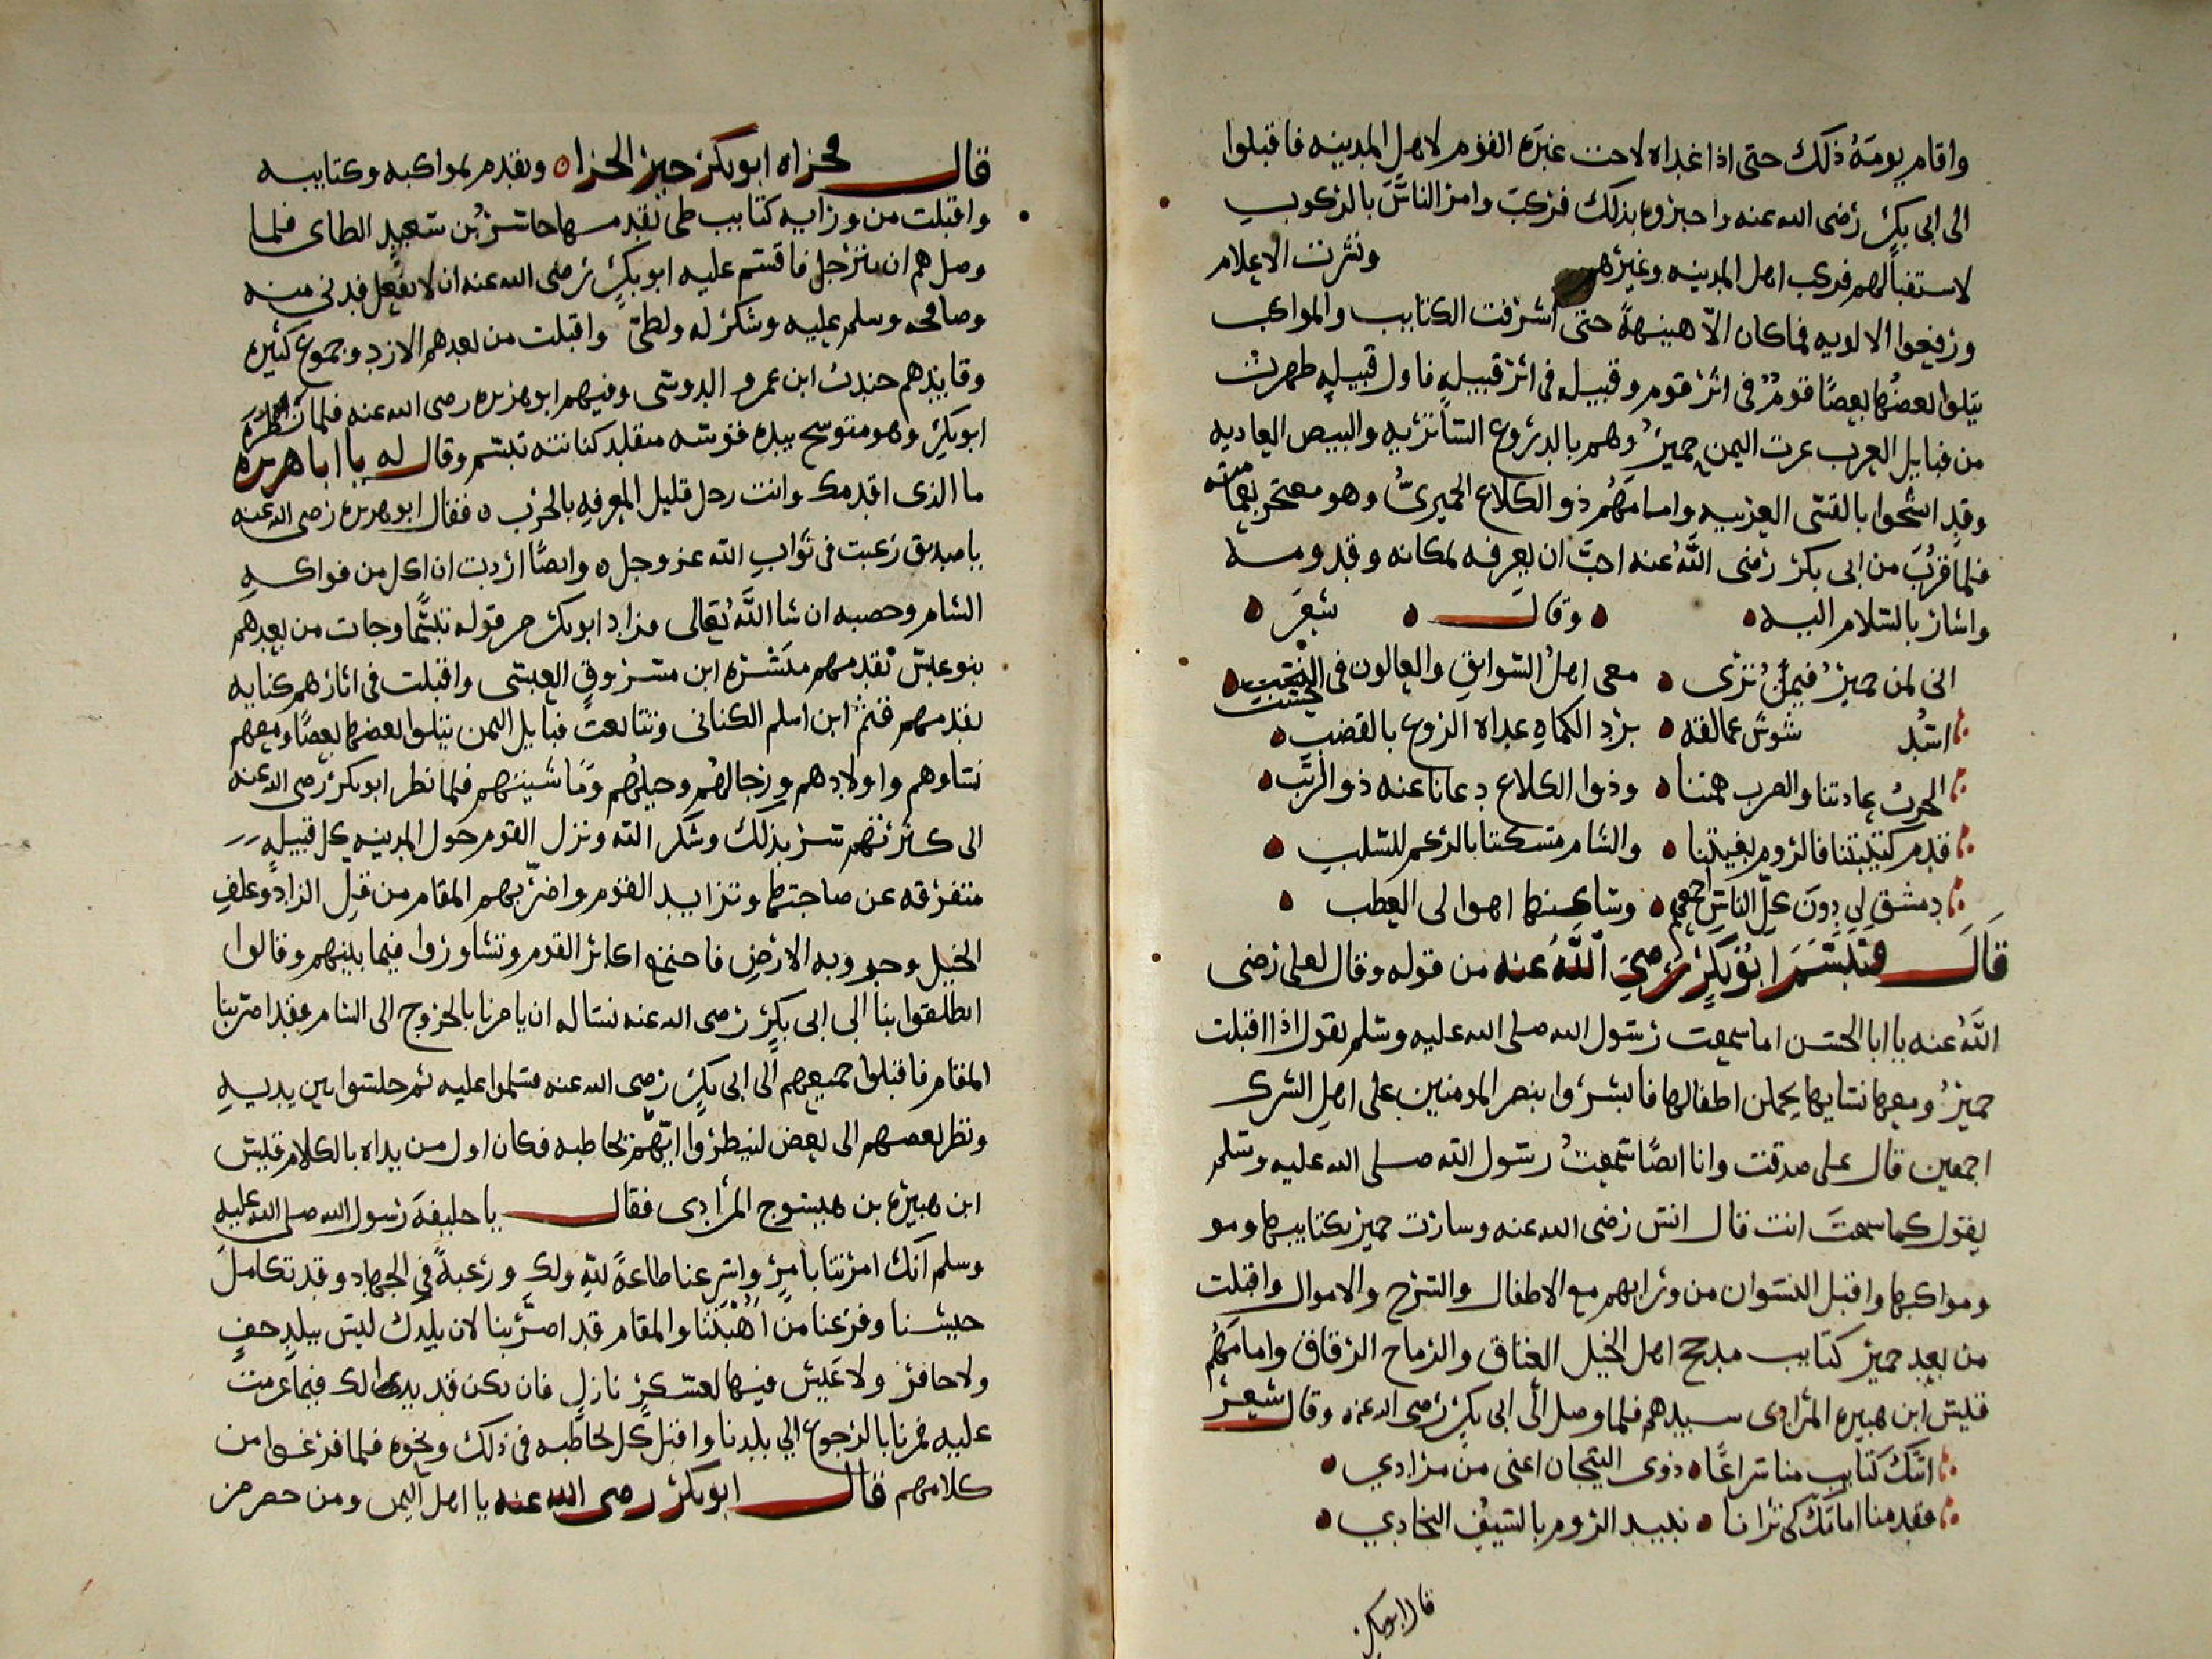 واقام يومه ذلك حتى اذا غداه لاحت غبره القوم لاهل المدينه فاقبلوا
الى ابى بكر رضى الله عنه واخبروه بذلك فركب وامر الناس بالركوب
لاستقبالهم فركب اهل المدينه وغيرهم ونشرت الاعلام
ورفعوا الالويه فما كان الا هنيهة حتى اشرفت الكتايب والمواكب
يتلوا بعضها بعضا قوم فى اثر قوم وقبيله فى اثر قبيله فاول قبيله ظهرت
من قبايل العرب عرب اليمن حمير وهم بالدروع السابريه والبيض العاديه
وقد اتشحوا بالقسى العربيه وامامهم ذو الكلاع الحميرى وهو معتجر بعمامته
فلما قرب من ابى بكر رضى الله عنه احب ان يعرفه لمكانه وقدومه
واشار بالسلام اليه وقال شعر
انى لمن حمير فيمن ترى معى اهل السوابق والعالون فى الحسب
اسد شوش عمالقه بزد الكماه غداه الروع بالقضب
الحرب عادتنا والضرب همتنا وذوا الكلاع دعانا عنه ذو الرتب
قدم كتيبتنا فالروم بغيتنا والشام مسكننا بالرغم للسلب
دمشق لى دون كل الناس اجمعهم وساكنها اهوا لى العطب
قال فتبسم ابو بكر رضى الله عنه من قوله وقال لعلى رضى
الله عنه يا ابا الحسن اما سمعت رسول الله صلى الله عليه وسلم يقول اذا اقبلت
حمير ومعها نسايها يحملن اطفالها فابشروا بنصر المومنين على اهل الشرك
اجمعين قال على صدقت وانا ايضا سمعت رسول الله صلى الله عليه وسلم
يقول كما سمعت انت قال انس رضى الله عنه وسارت حمير بكتايبها ومو
ومواكبها واقبل النسوان من ورايهم مع الاطفال والسرح والاموال واقبلت
من بعد حمير كتايب مذحج اهل الخيل العتاق والرماح الرقاق وامامهم
قيس ابن هبيره المرادى سيدهم فلما وصل الى ابى بكر رضى الله عنه وقال شعر
اتتك كتايب منا سراعا ذوى التيجان اعنى من مرادي
فقدمنا امامك كى ترانا نبيد الروم بالسيف النجادي
قال ابو بكر
قال فجزاه ابو بكر خير الجزاه وتقدم بمواكبه وكتايبه
واقبلت من ورايه كتايب طى تقدمها حاتم بن سعيد الطاى فلما
وصل هم ان يترجل فاقسم عليه ابو بكر رضى الله عنه ان لا يفعل فدنى منه
وصافحه وسلم عليه وشكر له ولطى واقبلت من بعدهم الازد وجموع كثيره
وقايدهم جندب ابن عمرو الدوسى وفيهم ابو هريره رضى الله عنه فلما نظره
ابو بكر وهو متوشح بيده قوسه متقلد كنانته تبسم وقال له يا ابا هريره
ما الذى اقدمك وانت رجل قليل المعرفه بالحرب فقال ابو هريره رضى الله عنه
يا صديق رغبت فى ثواب الله عز وجل وايضا اردت ان اكل من فواكه
الشام وخصبه ان شا الله تعالى فزاد ابو بكر من قوله تبسما وجات من بعدهم
بنو عبس تقدمهم ميسره ابن مسروق العبسى واقبلت فى اثارهم كنايه
تقدمهم قثم ابن اسلم الكنانى وتتابعت قبايل اليمن يتلوا بعضها بعضا ومعهم
نساوهم واولادهم ورجالهم وخيلهم وماشيتهم فلما نظر ابو بكر رضى الله عنه
الى كثرتهم سر بذلك وشكر الله ونزل القوم حول المدينه كل قبيله
متفرقه عن صاحبتها وتزايد القوم واضر بهم المقام من قبل الزاد وعلف
الخيل وجدوبه الارض فاجتمع اكابر القوم وتشاوروا فيما بينهم وقالوا
انطلقوا بنا الى ابى بكر رضى الله عنه نساله ان يامرنا بالخروج الى الشام فقد اضر بنا
المقام فاقبلوا جميعهم الى ابى بكر رضى الله عنه فسلموا عليه ثم جلسوا بين يديه
ونظر بعضهم الى بعض لينظروا ايهم يخاطبه فكان اول من بداه بالكلام قيس
ابن هبيره بن هبسوج المرادى فقال يا خليفه رسول الله صلى الله عليه
وسلم انك امرتنا بامر واسرعنا طاعة لله ولك ورغبة فى الجهاد وقد تكامل
جيشنا وفرغنا من اهبتنا والمقام قد اضر بنا لان بلدك ليس ببلد خف
ولا حافر ولا عيش فيها لعسكر نازل فان يكن قد بدا لك فيما عزمت
عليه فمرنا بالرجوع الى بلدنا واقبل كل يخاطبه فى ذلك ونحوه فلما فرغوا من
كلامهم قال ابو بكر رضى الله عنه يا اهل اليمن ومن حضر من